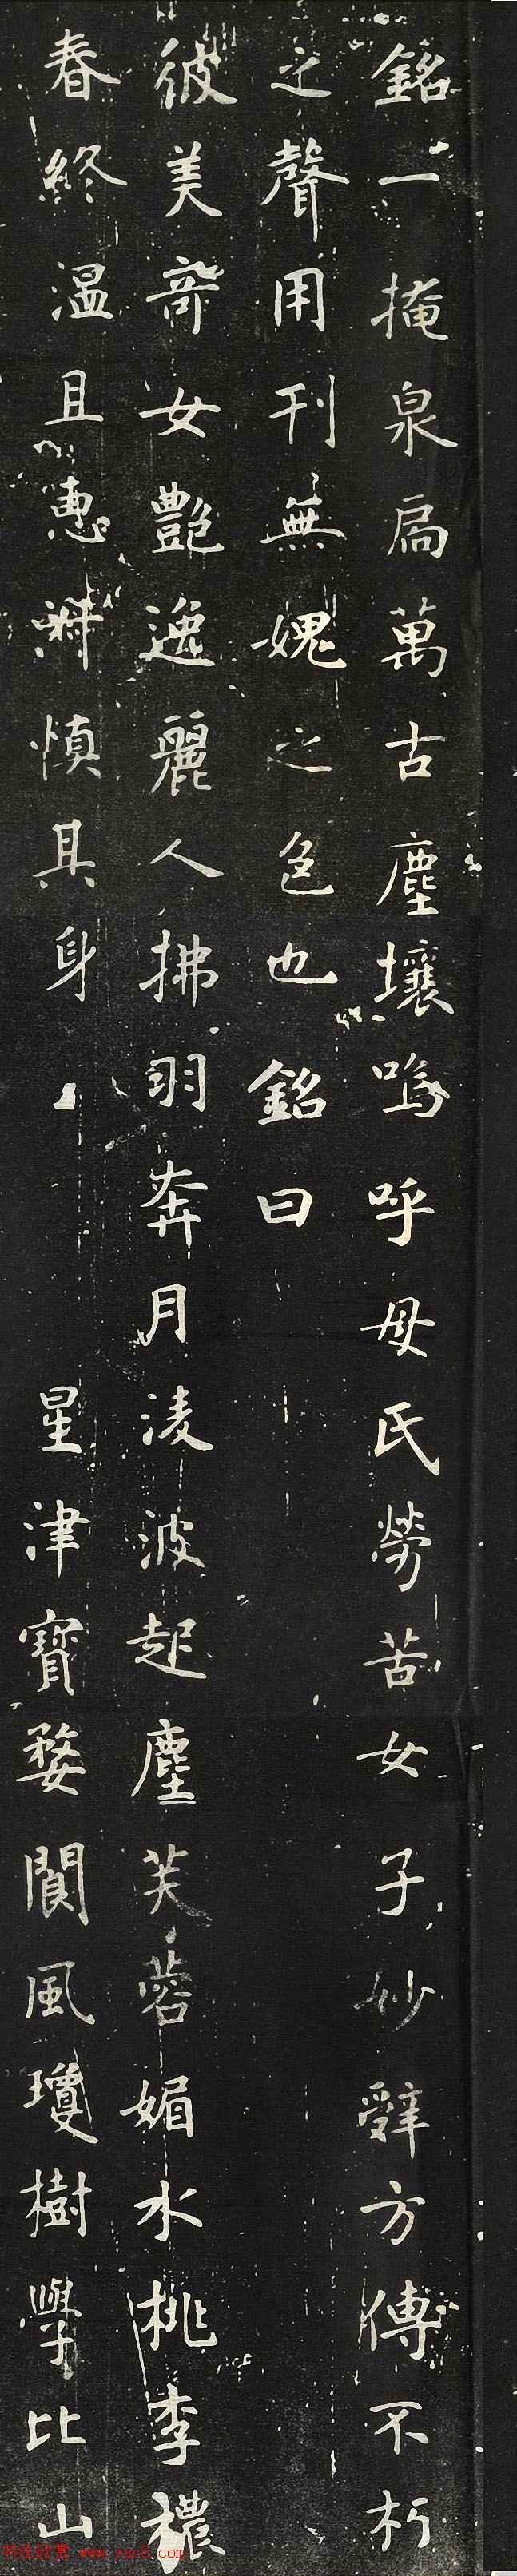 銘一掩泉扃萬古塵壤嗚呼母氏勞苦女子妙辭方傳不朽
之聲用刊無媿之色也銘曰
彼美奇女艷逸麗人拂羽奔月淩波起塵芙蓉媚水桃李穠
春終溫且惠淋慎其身星津寶婺閬風瓊樹學比山
书法欣赏 www.yac5.com